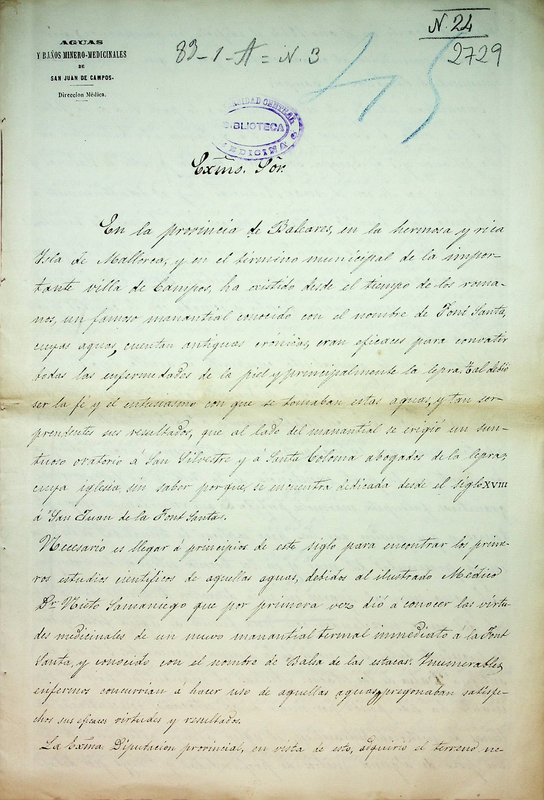 N. 24
2729
83-1-A = N. 3
45
AGUAS
Y BAÑOS MINERO-MEDICINALES
DE
SAN JUAN DE CAMPOS.
Direccion Médica.
CENTRAL
BIBLIOTECA
MEDICINA
Exmo. Sor.
En la provincia de Baleares, en la hermosa y rica
Isla de Mallorca, y en el término municipal de la impor-
tante villa de Campos, ha existido desde el tiempo de los roma-
nos, un famoso manantial conocido con el nombre de Font Santa,
cuyas aguas, cuentan antiguas crónicas, eran eficaces para convatir
todas las enfermedades de la piel y principalmente la lepra. Tal debió
ser la fé y el entusiasmo con que se tomaban estas aguas, y tan sor-
prendentes sus resultados, que al lado del manantial se erigió un sun-
tuoso oratorio á San Silvestre y á Santa Coloma abogados de la lepra,
cuya iglesia, sin saber porque, se encuentra dedicada desde el siglo XVIII
á San Juan de la Font Santa.
Necesario es llegar á principios de este siglo para encontrar los prime-
ros estudios cientificos de aquellas aguas, debidos al ilustrado Médico
Dr. Nieto Samaniego que por primera vez dió á conocer las virtu-
des medicinales de un nuevo manantial termal inmediato á la Font
Santa, y conocido con el nombre de Balsa de las estacas. Inumerables
enfermos concurrian á hacer uso de aquellas aguas, y pregonaban satisfe-
chos sus eficaces virtudes y resultados.
La Exma Diputacion provincial, en vista de esto, adquirió el terreno ne-